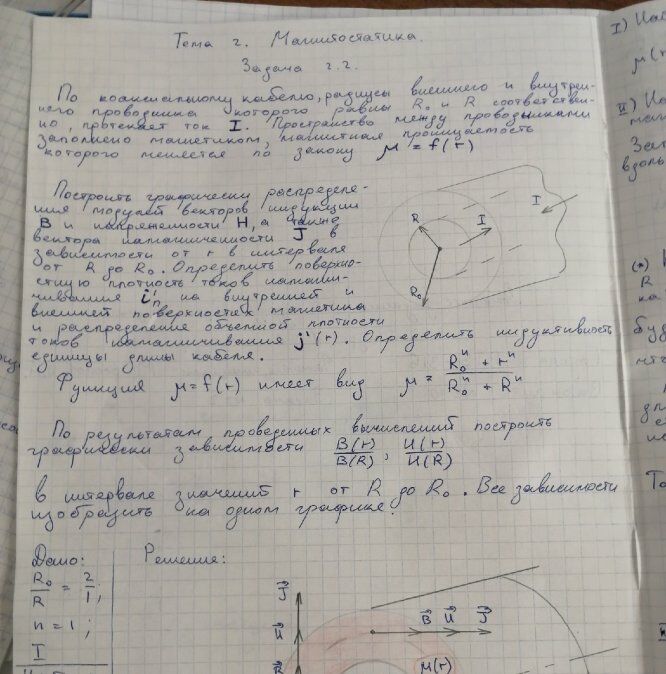 Тема 2. Магнитостатика.
Задача 2.2.
По коаксиальному кабелю, радиусы внешнего и внутрен-
него проводника которого равны R₀ и R соответствен-
но, протекает ток I. Пространство между проводниками
заполнено магнетиком, магнитная проницаемость
которого меняется по закону μ = f(r)
Построить графически распределе-
ния модулей векторов индукции
B и напряженности H, а также
вектора намагниченности J в
зависимости от r в интервале
от R до R₀. Определить поверхно-
стную плотность токов намагни-
чивания i'ₙ на внутренней и
внешней поверхностях магнетика
и распределение объемной плотности
токов намагничивания j'(r). Определить индуктивность
единицы длины кабеля.
Функция μ = f(r) имеет вид μ = (R₀ⁿ + rⁿ)/(R₀ⁿ + Rⁿ)
По результатам проведенных вычислений построить
графически зависимости B(r)/B(R), H(r)/H(R)
в интервале значений r от R до R₀. Все зависимости
изобразить на одном графике.
Дано: Решение:
R₀/R = 2/1;
n = 1;
I
R
R₀
I
I
J
H
B
B H J
μ(r)
I)
μ(r
II)
вдоль
(*)
R
ка
буд